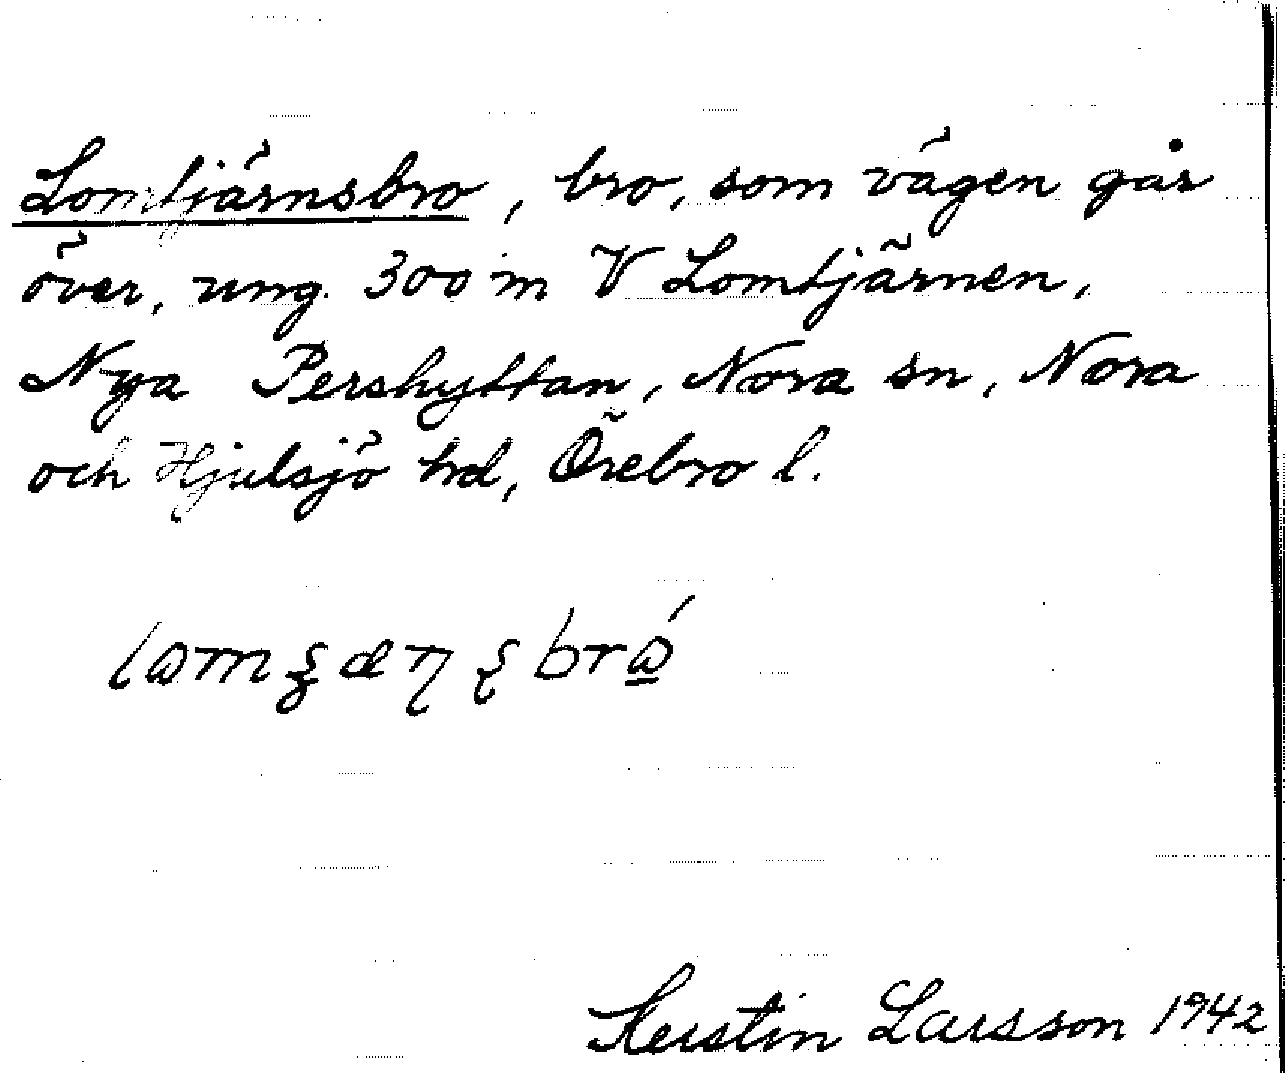 Lomtjärnsbro, bro, som vägen går
över, ung. 300 m V Lomtjärnen,
Nya Pershyttan, Nora sn, Nora
och Hjulsjö hd, Örebro l.
Kerstin Larsson 1942